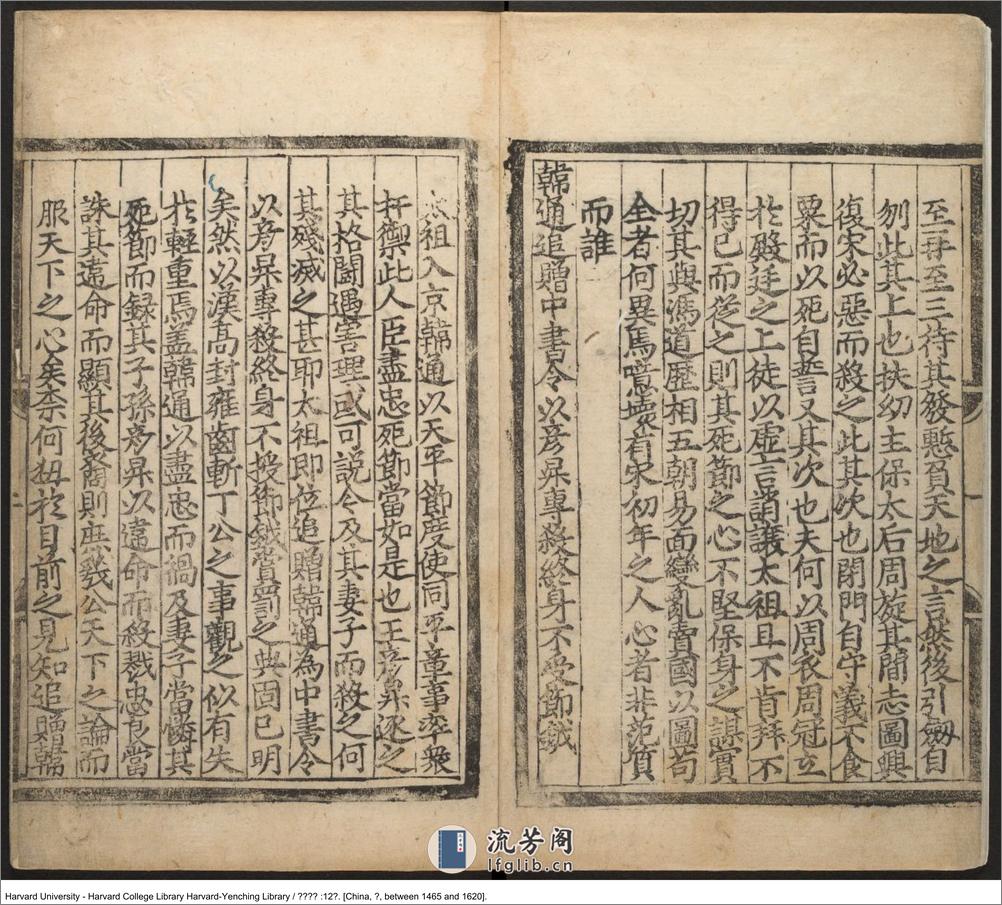 至再至三待其發慙負天地之言然後引劔自
刎此其上也扶幼主保太后周旋其間志圖興
復宋必惡而殺之此其次也閉門自守義不食
粟而以死自誓又其次也夫何以周衣周冠立
於殿廷之上徒以虛言誚讓太祖且不肯拜不
得已而從之則其死節之心不堅保身之謀實
切其與馮道歷相五朝易面變亂賣國以圖苟
全者何異焉噫壞有宋初年之人心者非范質
而誰
韓通追贈中書令以彥昇專殺終身不受節鉞
祖入京韓通以天平節度使同平章事率衆
扞禦此人臣盡忠死節當如是也王彥昇逐之
其格鬭遇害理或可說令及其妻子而殺之何
其殘滅之甚耶太祖即位追贈韓通為中書令
以彥昇專殺終身不授節鉞賞罰之典固已明
矣然以漢高封雍齒斬丁公之事觀之似有失
於輕重焉盖韓通以盡忠而禍及妻子當憐其
死節而録其子孫彥昇以違命而殺戮忠良當
誅其違命而顯其後裔則庶幾公天下之論而
服天下之心矣柰何狃於目前之見知追贈韓
流芳阁
lfglib.cn
Harvard University - Harvard College Library Harvard-Yenching Library / ???? :12?. [China, ?, between 1465 and 1620].